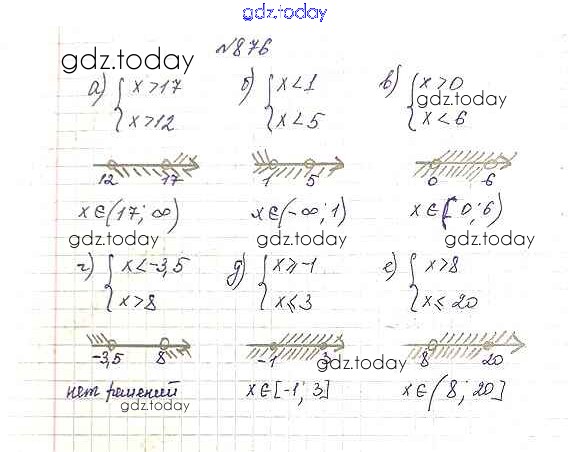 gdz.today
gdz.today
№876
а) { x>17
x>12
б) { x<1
x<5
в) { x>0
gdz.today
x<6
12 17
1 5
0 6
x∈(17; ∞)
x∈(-∞; 1)
x∈[0; 6)
gdz.today
gdz.today
gdz.today
г) { x<-3,5
x>8
д) { x⩾-1
x⩽3
е) { x>8
x⩽20
-3,5 8
-1 3
8 20
gdz.today
нет решений
x∈[-1; 3]
x∈(8; 20]
gdz.today